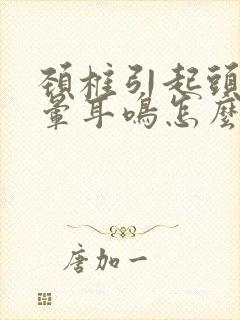 頚柱引起頭
暈耳鳴怎麼
唐加一